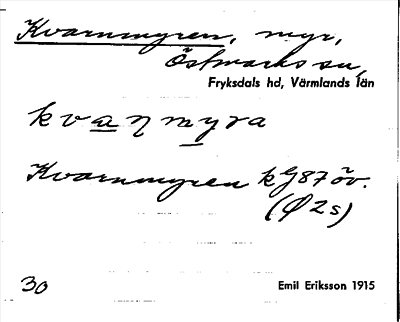 Kvarnmyren, myr,
Östmarks sn,
Fryksdals hd, Värmlands län
kvaŋmyra
Kvarnmyren kG87 öv.
(Ø2s)
30
Emil Eriksson 1915